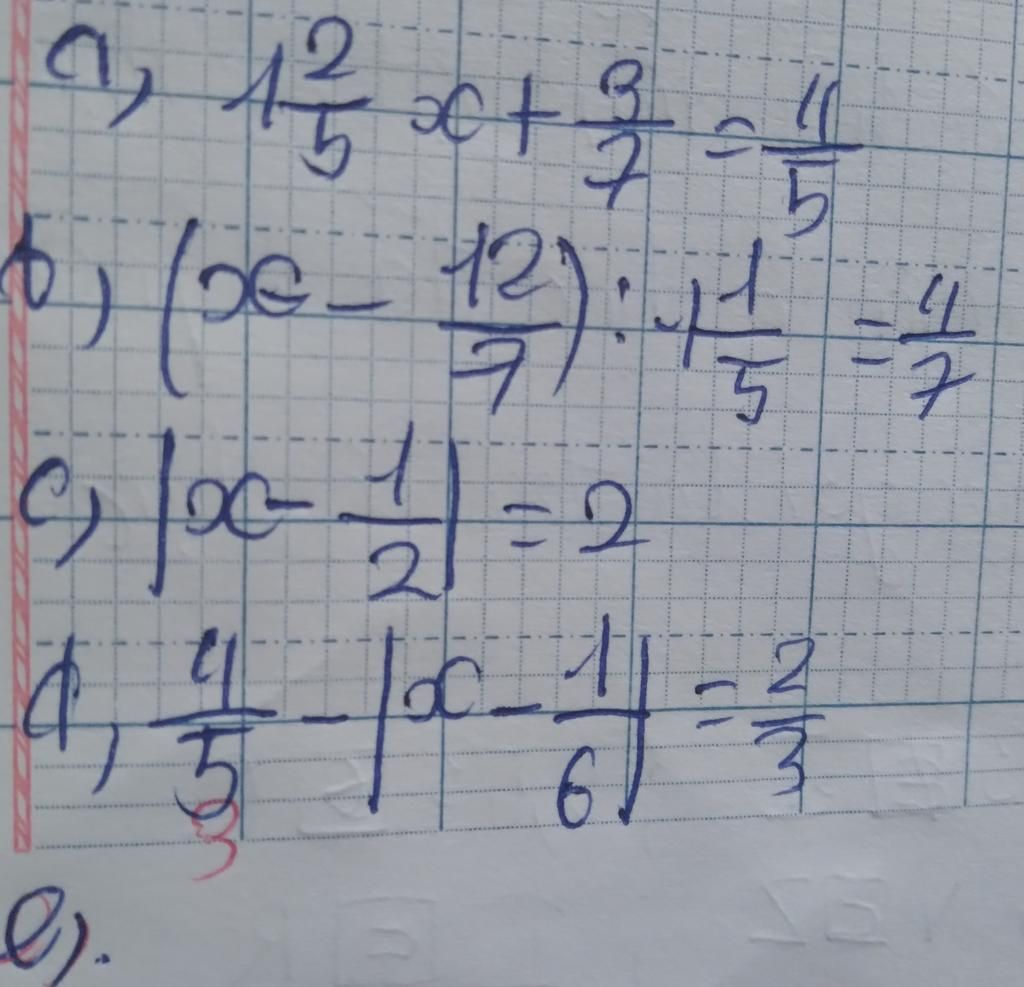 a, 1 2/5 x + 3/7 = 4/5
b, (x - 12/7) : 1 1/5 = 4/7
c, |x - 1/2| = 2
d, 4/5 - |x - 1/6| = 2/3
3
e,.